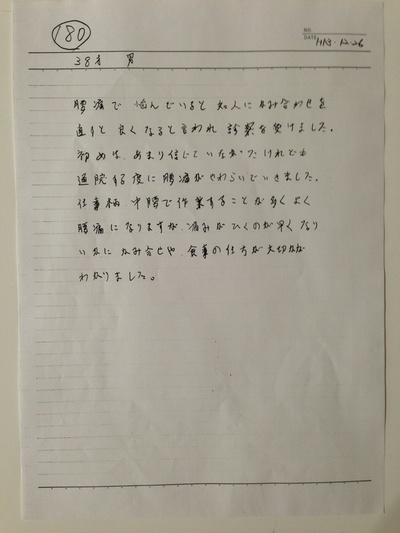 180
NO.
DATE H18・12・26
38才 男
腰痛で 悩んでいると 知人に かみ合わせを
直すと 良くなると言われ 診察を受けました。
初めは、あまり信じていなかったけれども
通院する度に腰痛がやわらいでいきました。
仕事柄 中腰で作業することが多く よく
腰痛になりますが、痛みがひくのが早くなり
いかに かみ合せや、食事の仕方が大切かが
わかりました。